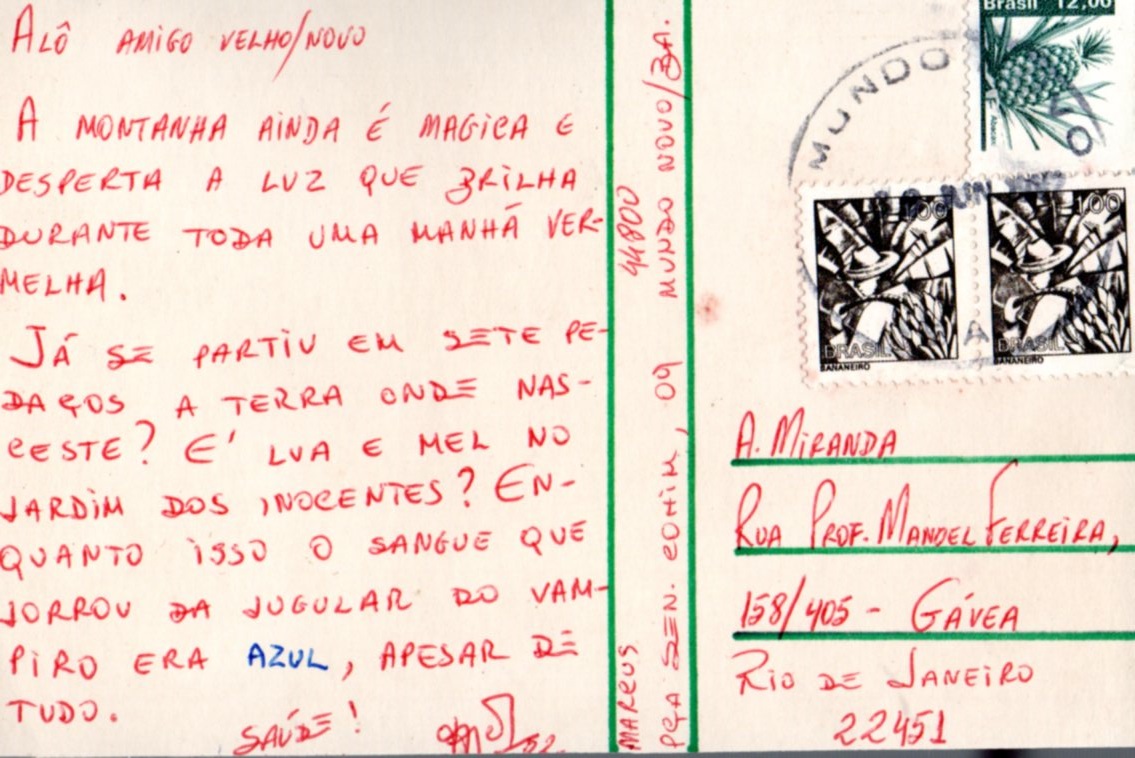 ALÔ AMIGO VELHO/NOVO
A MONTANHA AINDA É MAGICA E
DESPERTA A LUZ QUE BRILHA
DURANTE TODA UMA MANHÃ VER-
MELHA.
JÁ SE PARTIU EM SETE PE-
DAÇOS A TERRA ONDE NAS-
CESTE? E' LUA E MEL NO
JARDIM DOS INOCENTES? EN-
QUANTO ISSO O SANGUE QUE
JORROU DA JUGULAR DO VAM-
PIRO ERA AZUL, APESAR DE
TUDO.
SAÚDE!
MARCUS
44800
PÇA SEN. COHIM, 09 MUNDO NOVO/BA.
Brasil 12,00
MUNDO
JUN
100
BRASIL
BANANEIRO
100
BRASIL
BANANEIRO
A. MIRANDA
RUA PROF. MANOEL FERREIRA,
158/405 - GÁVEA
RIO DE JANEIRO
22451